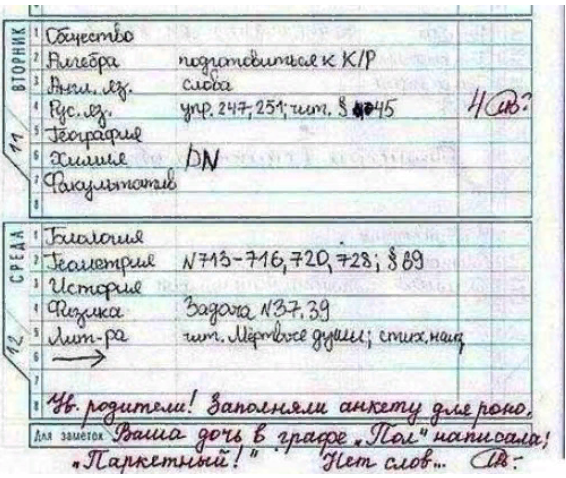 ВТОРНИК
11
1 Общество
2 Алгебра подготовиться к К/Р
3 Англ. яз. слова
4 Рус. яз. упр. 247, 251; чит. § 45 4
5 География
6 Химия
7 Факультатив
8
СРЕДА
12
1 Биология
2 Геометрия N713-716, 720, 728; § 69
3 История
4 Физика Задача N37, 39
5 Лит-ра чит. Мёртвые души; стих. наиз
6 →
7
8 Ув. родители! Заполняли анкету для роно.
Для заметок Ваша дочь в графе „Пол" написала:
„Паркетный!" Нет слов...